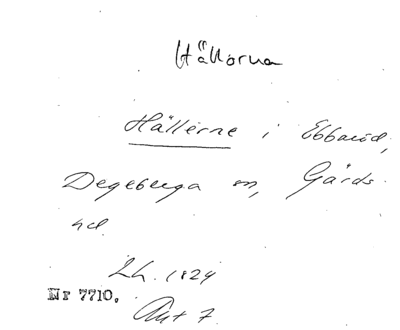 Hällorna
Hällerne i Ebbaröd,
Degeberga sn, Gärds
hd
Lh. 1824
Nr 7710.
Akt 7